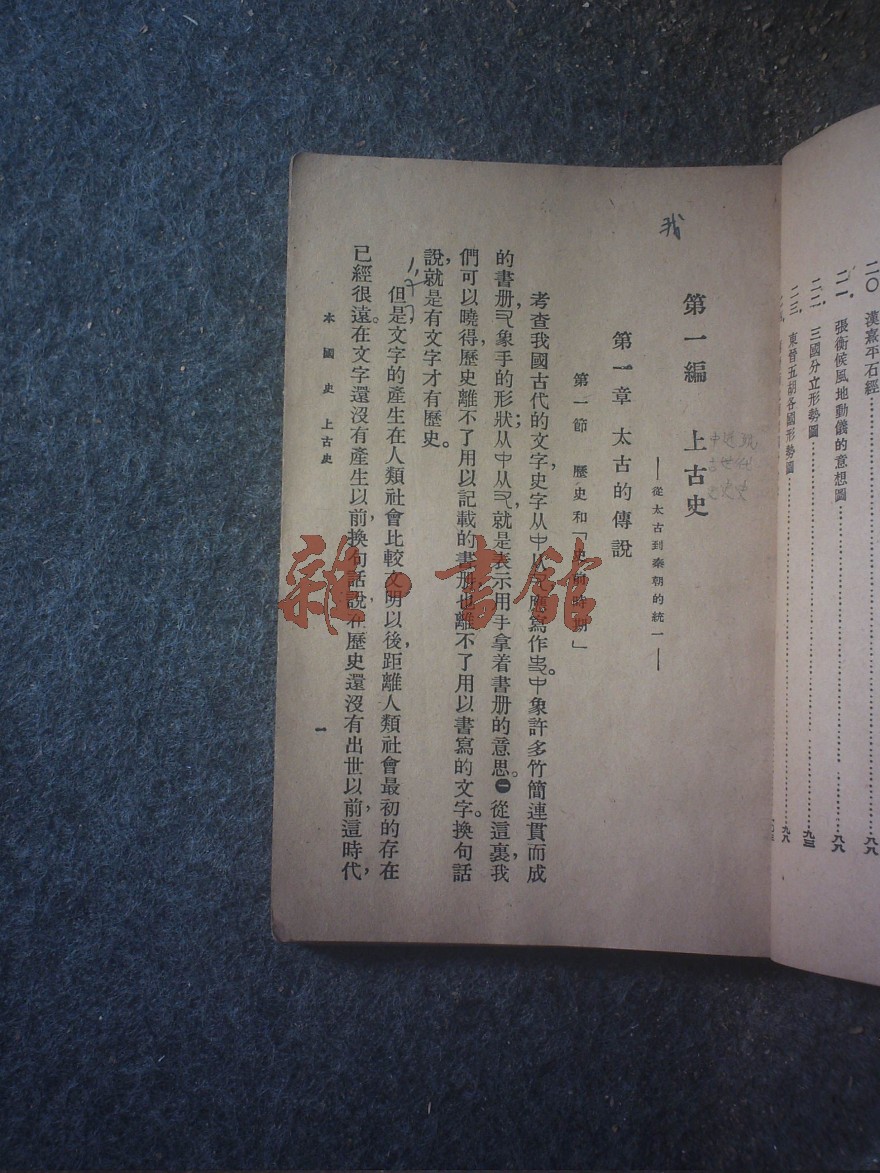 二〇.漢熹平石經……九九
二一.張衡候風地動儀的意想圖……九九
二二.三國分立形勢圖……九三
二三.東晉五胡各國形勢圖……九八
我
第一編 上古史
——從太古到秦朝的統一——
第一章 太古的傳說
第一節 歷史和「史前時期」
考查我國古代的文字,史字从中从又,應寫作㕜。中象許多竹簡連貫而成
的書册,又象手的形狀;从中从又,就是表示用手拿着書册的意思。㊀從這裏,我
們可以曉得,歷史離不了用以記載的書册,也離不了用以書寫的文字。換句話
說,就是有文字才有歷史。
但是,文字的產生在人類社會比較文明以後,距離人類社會最初的存在
已經很遠。在文字還沒有產生以前,換句話說,在歷史還沒有出世以前,這時代,
本國史 上古史
一
雜·書館